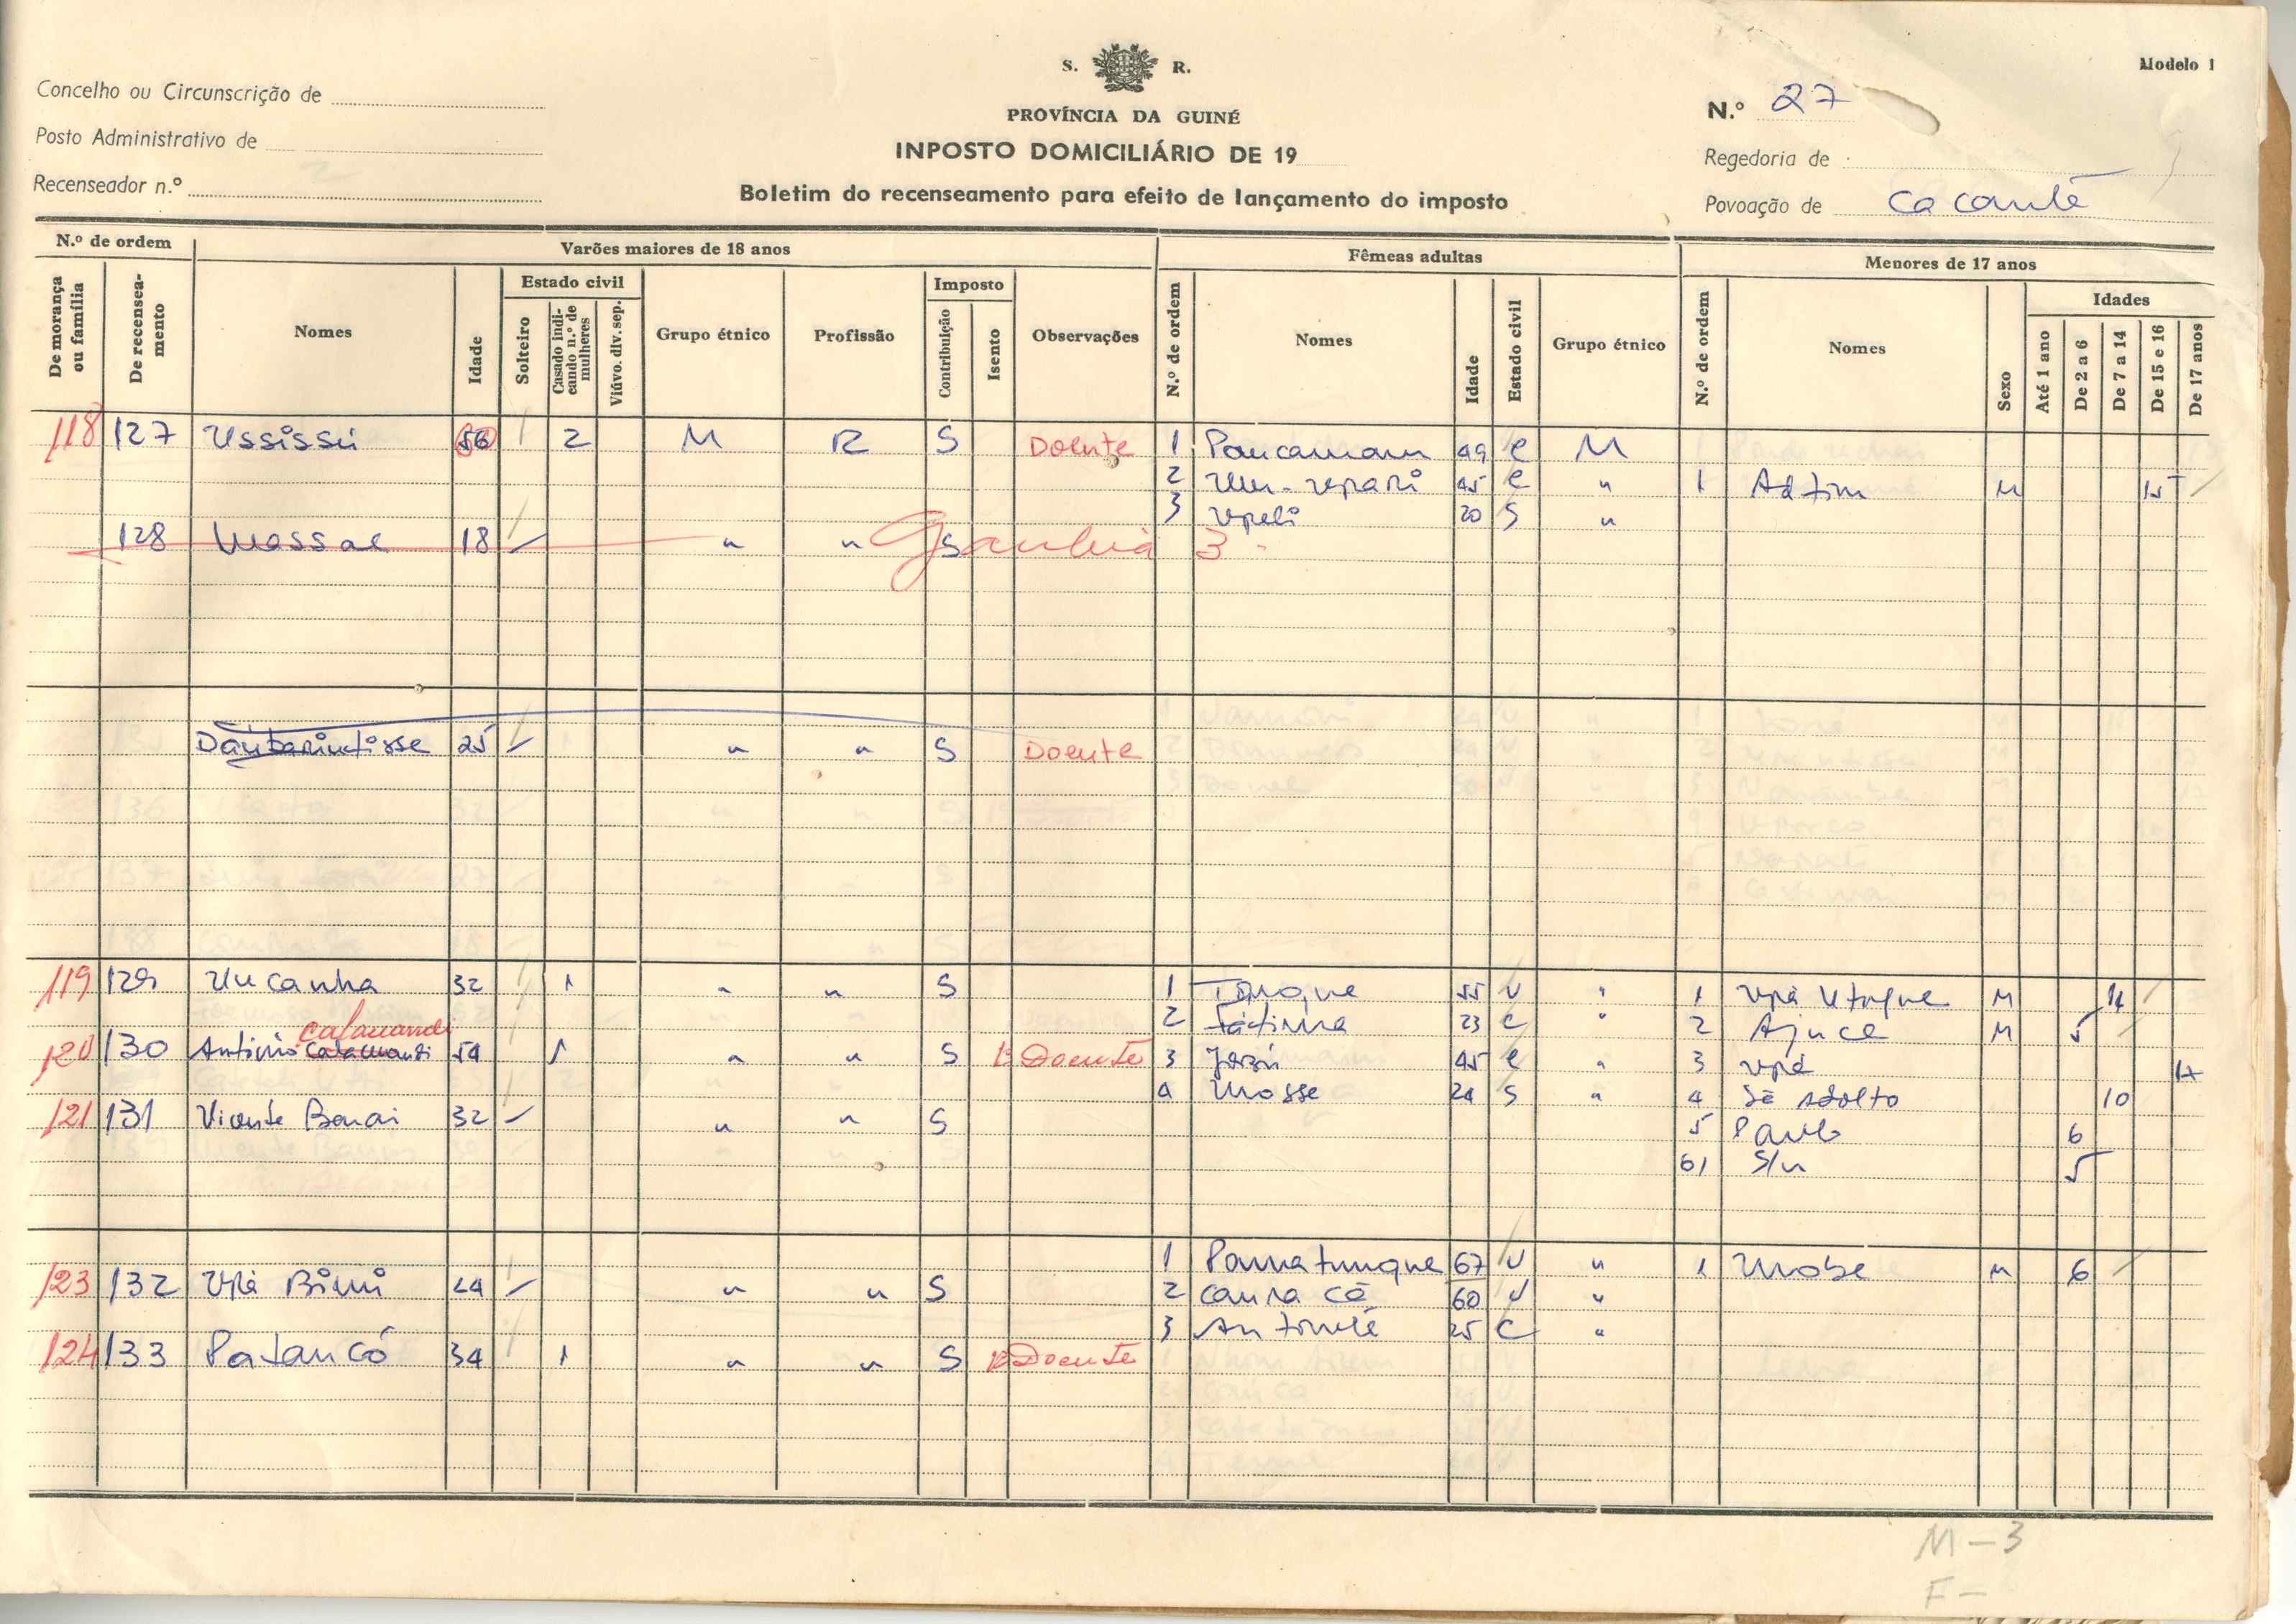 S. R.
Modelo 1
Concelho ou Circunscrição de
Posto Administrativo de
Recenseador n.º
PROVÍNCIA DA GUINÉ
INPOSTO DOMICILIÁRIO DE 19
Boletim do recenseamento para efeito de lançamento do imposto
N.º 27
Regedoria de
Povoação de Cacanté
N.º de ordem
Varões maiores de 18 anos
Fêmeas adultas
Menores de 17 anos
De morança ou família
De recenseamento
Nomes
Idade
Estado civil
Solteiro
Casado indicando n.º de mulheres
Viúvo. div. sep.
Grupo étnico
Profissão
Imposto
Contribuição
Isento
Observações
N.º de ordem
Nomes
Idade
Estado civil
Grupo étnico
N.º de ordem
Nomes
Sexo
Idades
Até 1 ano
De 2 a 6
De 7 a 14
De 15 e 16
De 17 anos
118 127 Ussissú 56 2 M R S Doente 1 49 C M
2 45 C " 1 Adtim M 15
3 Upeli 20 S "
128 18 " " S 3
25 " " S Doente
119 129 Un canha 32 1 " " S 1 55 V " 1 M 14
2 Fátima 23 C " 2 Ajuce M 5
Catauandi
120 130 António 54 1 " " S Doente 3 45 C " 3 Upá 17
4 Mosse 24 S " 4 10
121 131 Vicente Banai 32 " " S 5 Paulo 6
6 S/n 5
1 Pannatungue 67 V " 1 Mobe M 6
123 132 Upá Bimi 24 " " S 2 60 V "
3 Antonité 25 C "
124 133 Patancó 34 1 " " S Doente
M - 3
F -